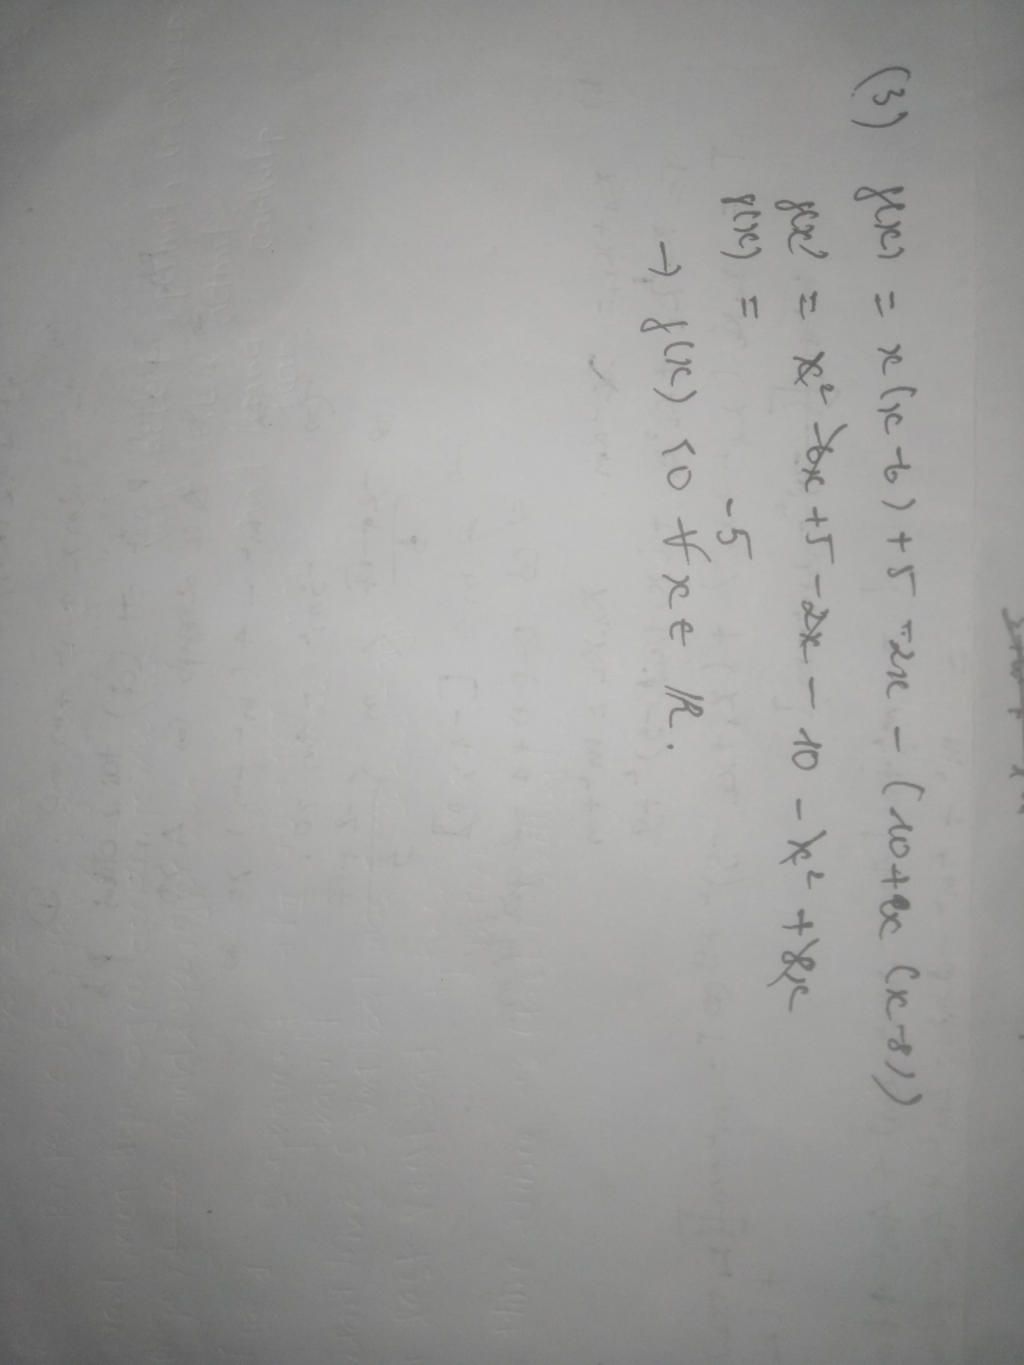 (3) f(x) = x(x-6)+5-2x-(10+x(x-8))
f(x) = x²-6x+5-2x-10-x²+8x
f(x) = -5
→ f(x) <0 ∀x∈ ℝ.